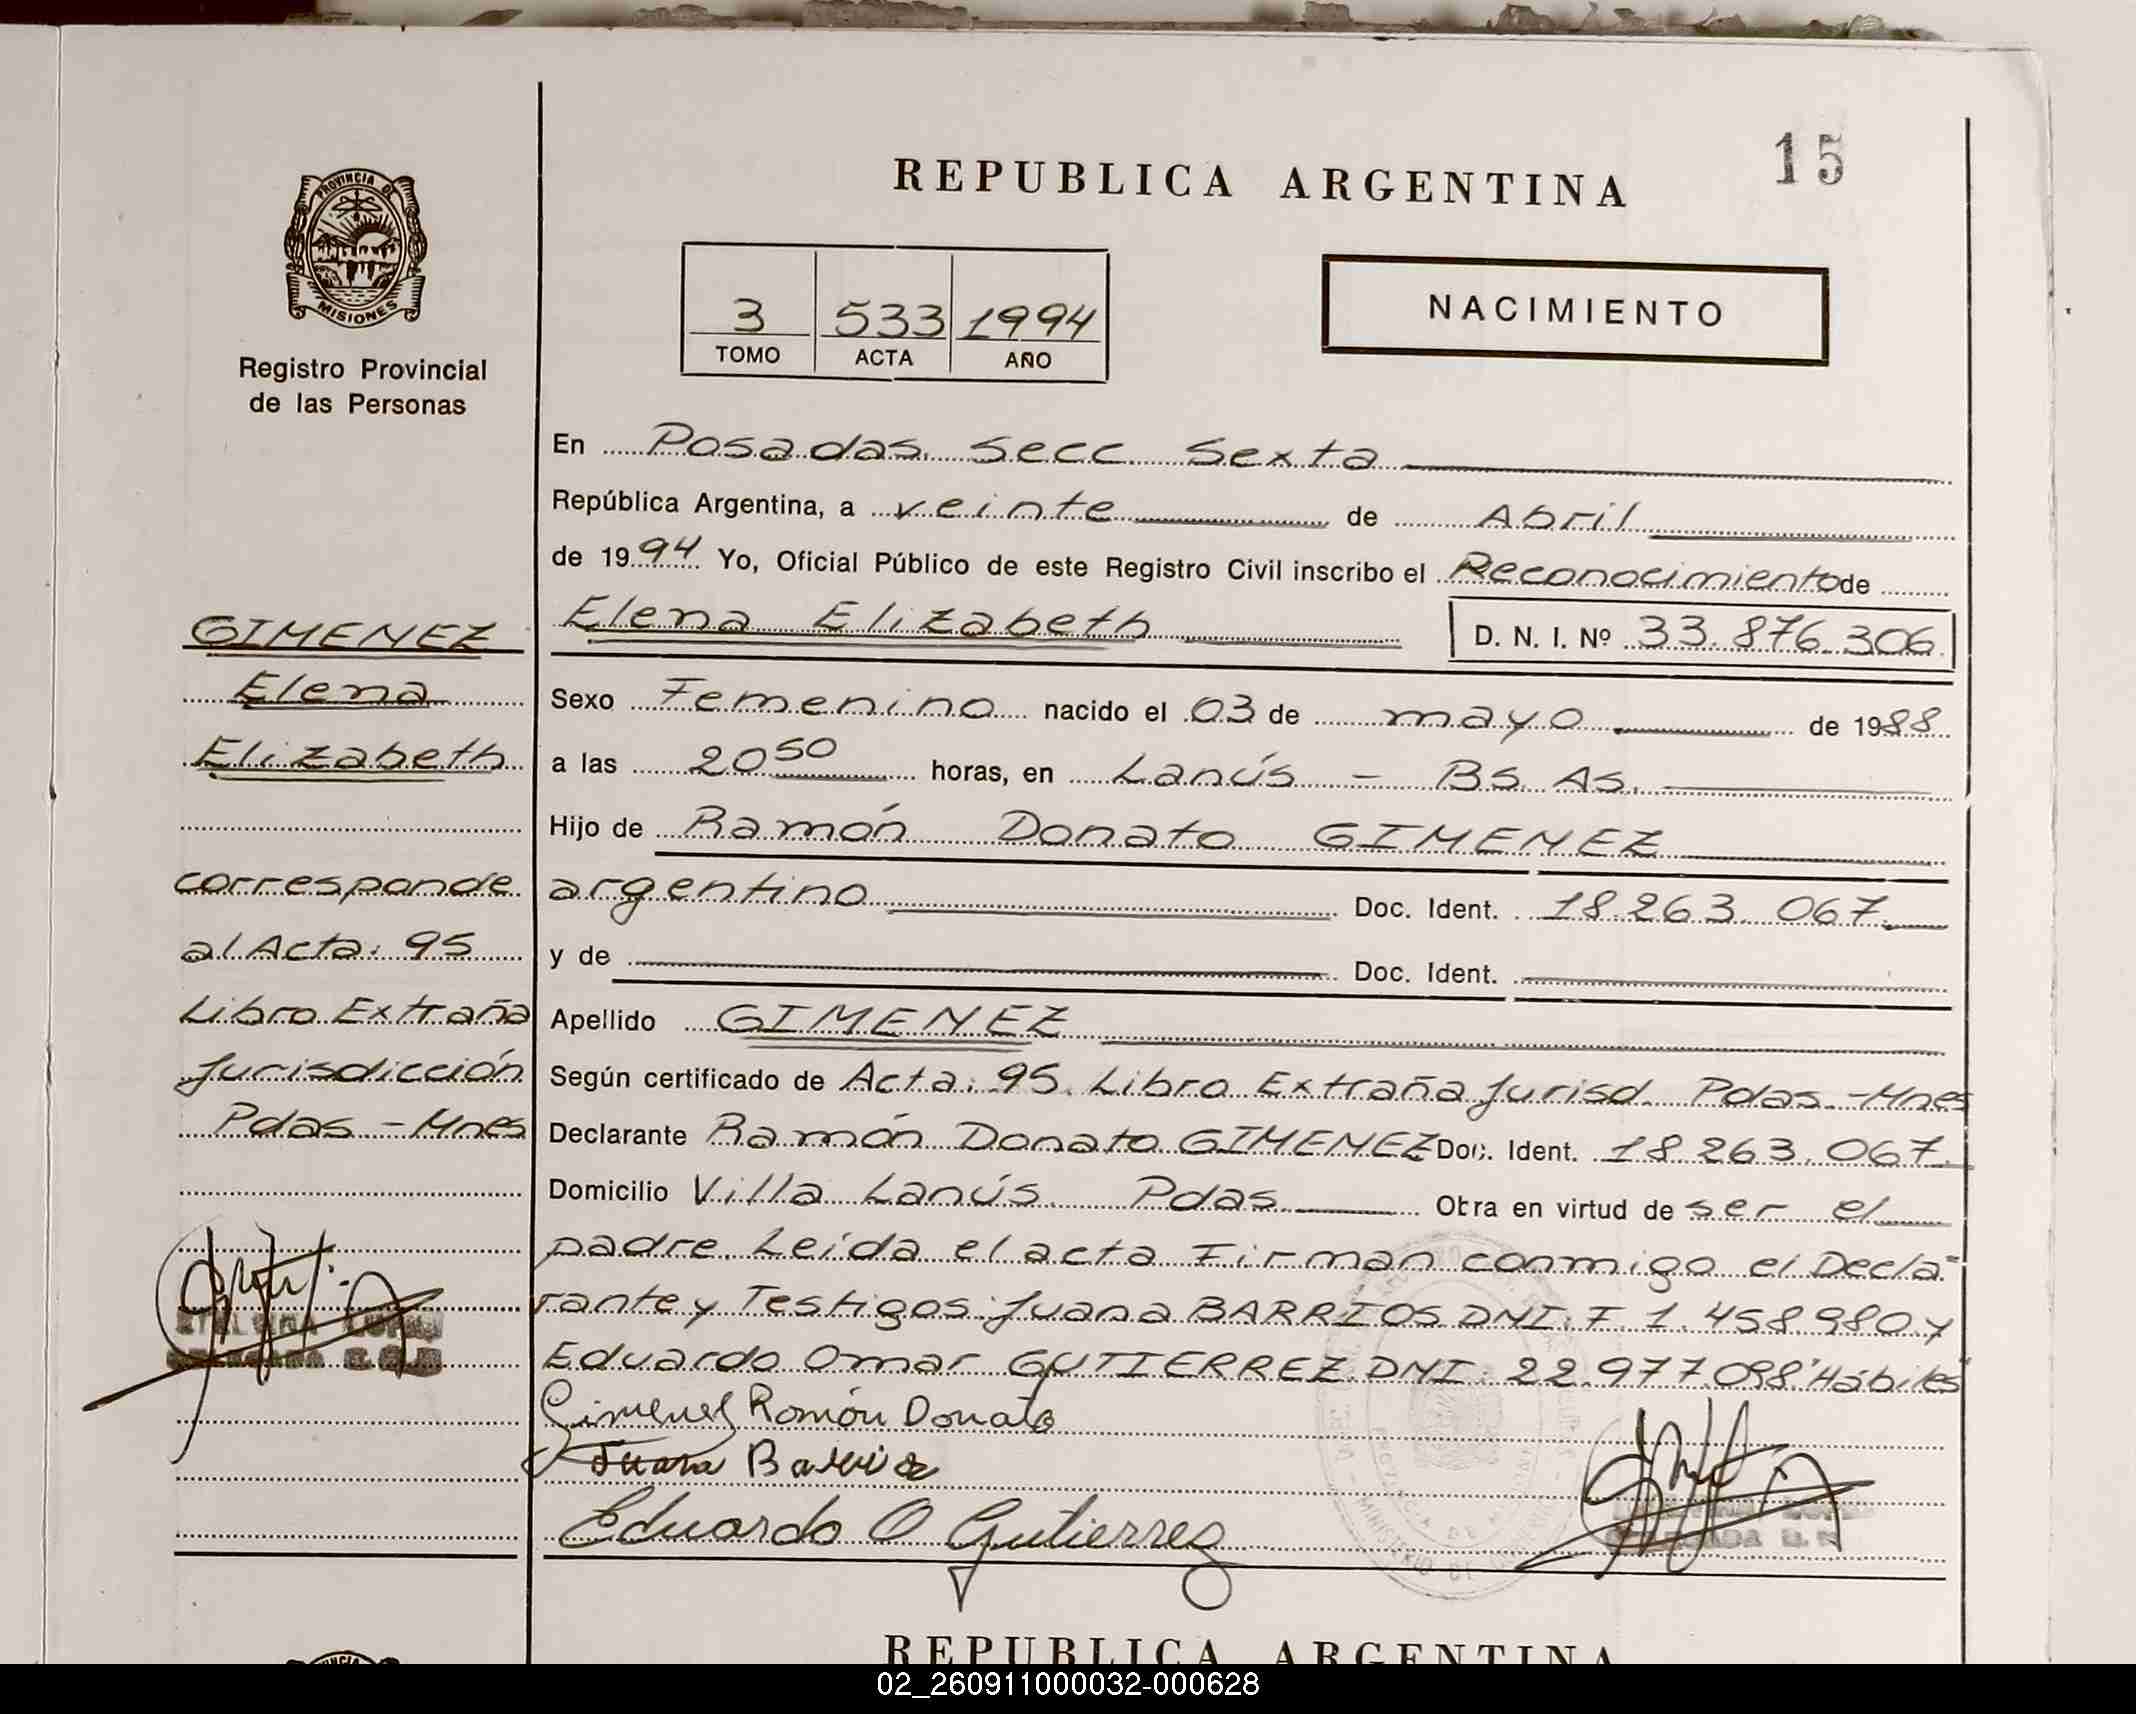 15
REPUBLICA ARGENTINA
PROVINCIA DE
MISIONES
Registro Provincial
de las Personas
3 533 1994
TOMO ACTA AÑO
NACIMIENTO
En Posadas Secc Sexta
República Argentina, a veinte de Abril
de 1994 Yo, Oficial Público de este Registro Civil inscribo el Reconocimiento de
Elena Elizabeth D. N. I. Nº 33.876.306
Sexo Femenino nacido el 03 de mayo de 1988
a las 20 50 horas, en Lanús - BS. AS.
Hijo de Ramón Donato GIMENEZ
argentino Doc. Ident. 18.263.067
y de Doc. Ident.
Apellido GIMENEZ
Según certificado de Acta: 95 Libro Extraña Jurisd. Pdas.-Mnes
Declarante Ramón Donato GIMENEZ Doc. Ident. 18.263.067.
Domicilio Villa Lanús. Pdas Obra en virtud de ser el
padre Leída el acta Firman conmigo el Decla-
rante y Testigos: Juana BARRIOS DNI. F. 1.458.980 y
Eduardo Omar GUTIERREZ. DNI: 22.977.098 "Hábiles"
Gimenez Ramón Donato
Juana Barrios
Eduardo O Gutierrez
GIMENEZ
Elena
Elizabeth
corresponde
al Acta: 95
Libro Extraña
Jurisdicción
Pdas - Mnes
REPUBLICA ARGENTINA
02_260911000032-000628